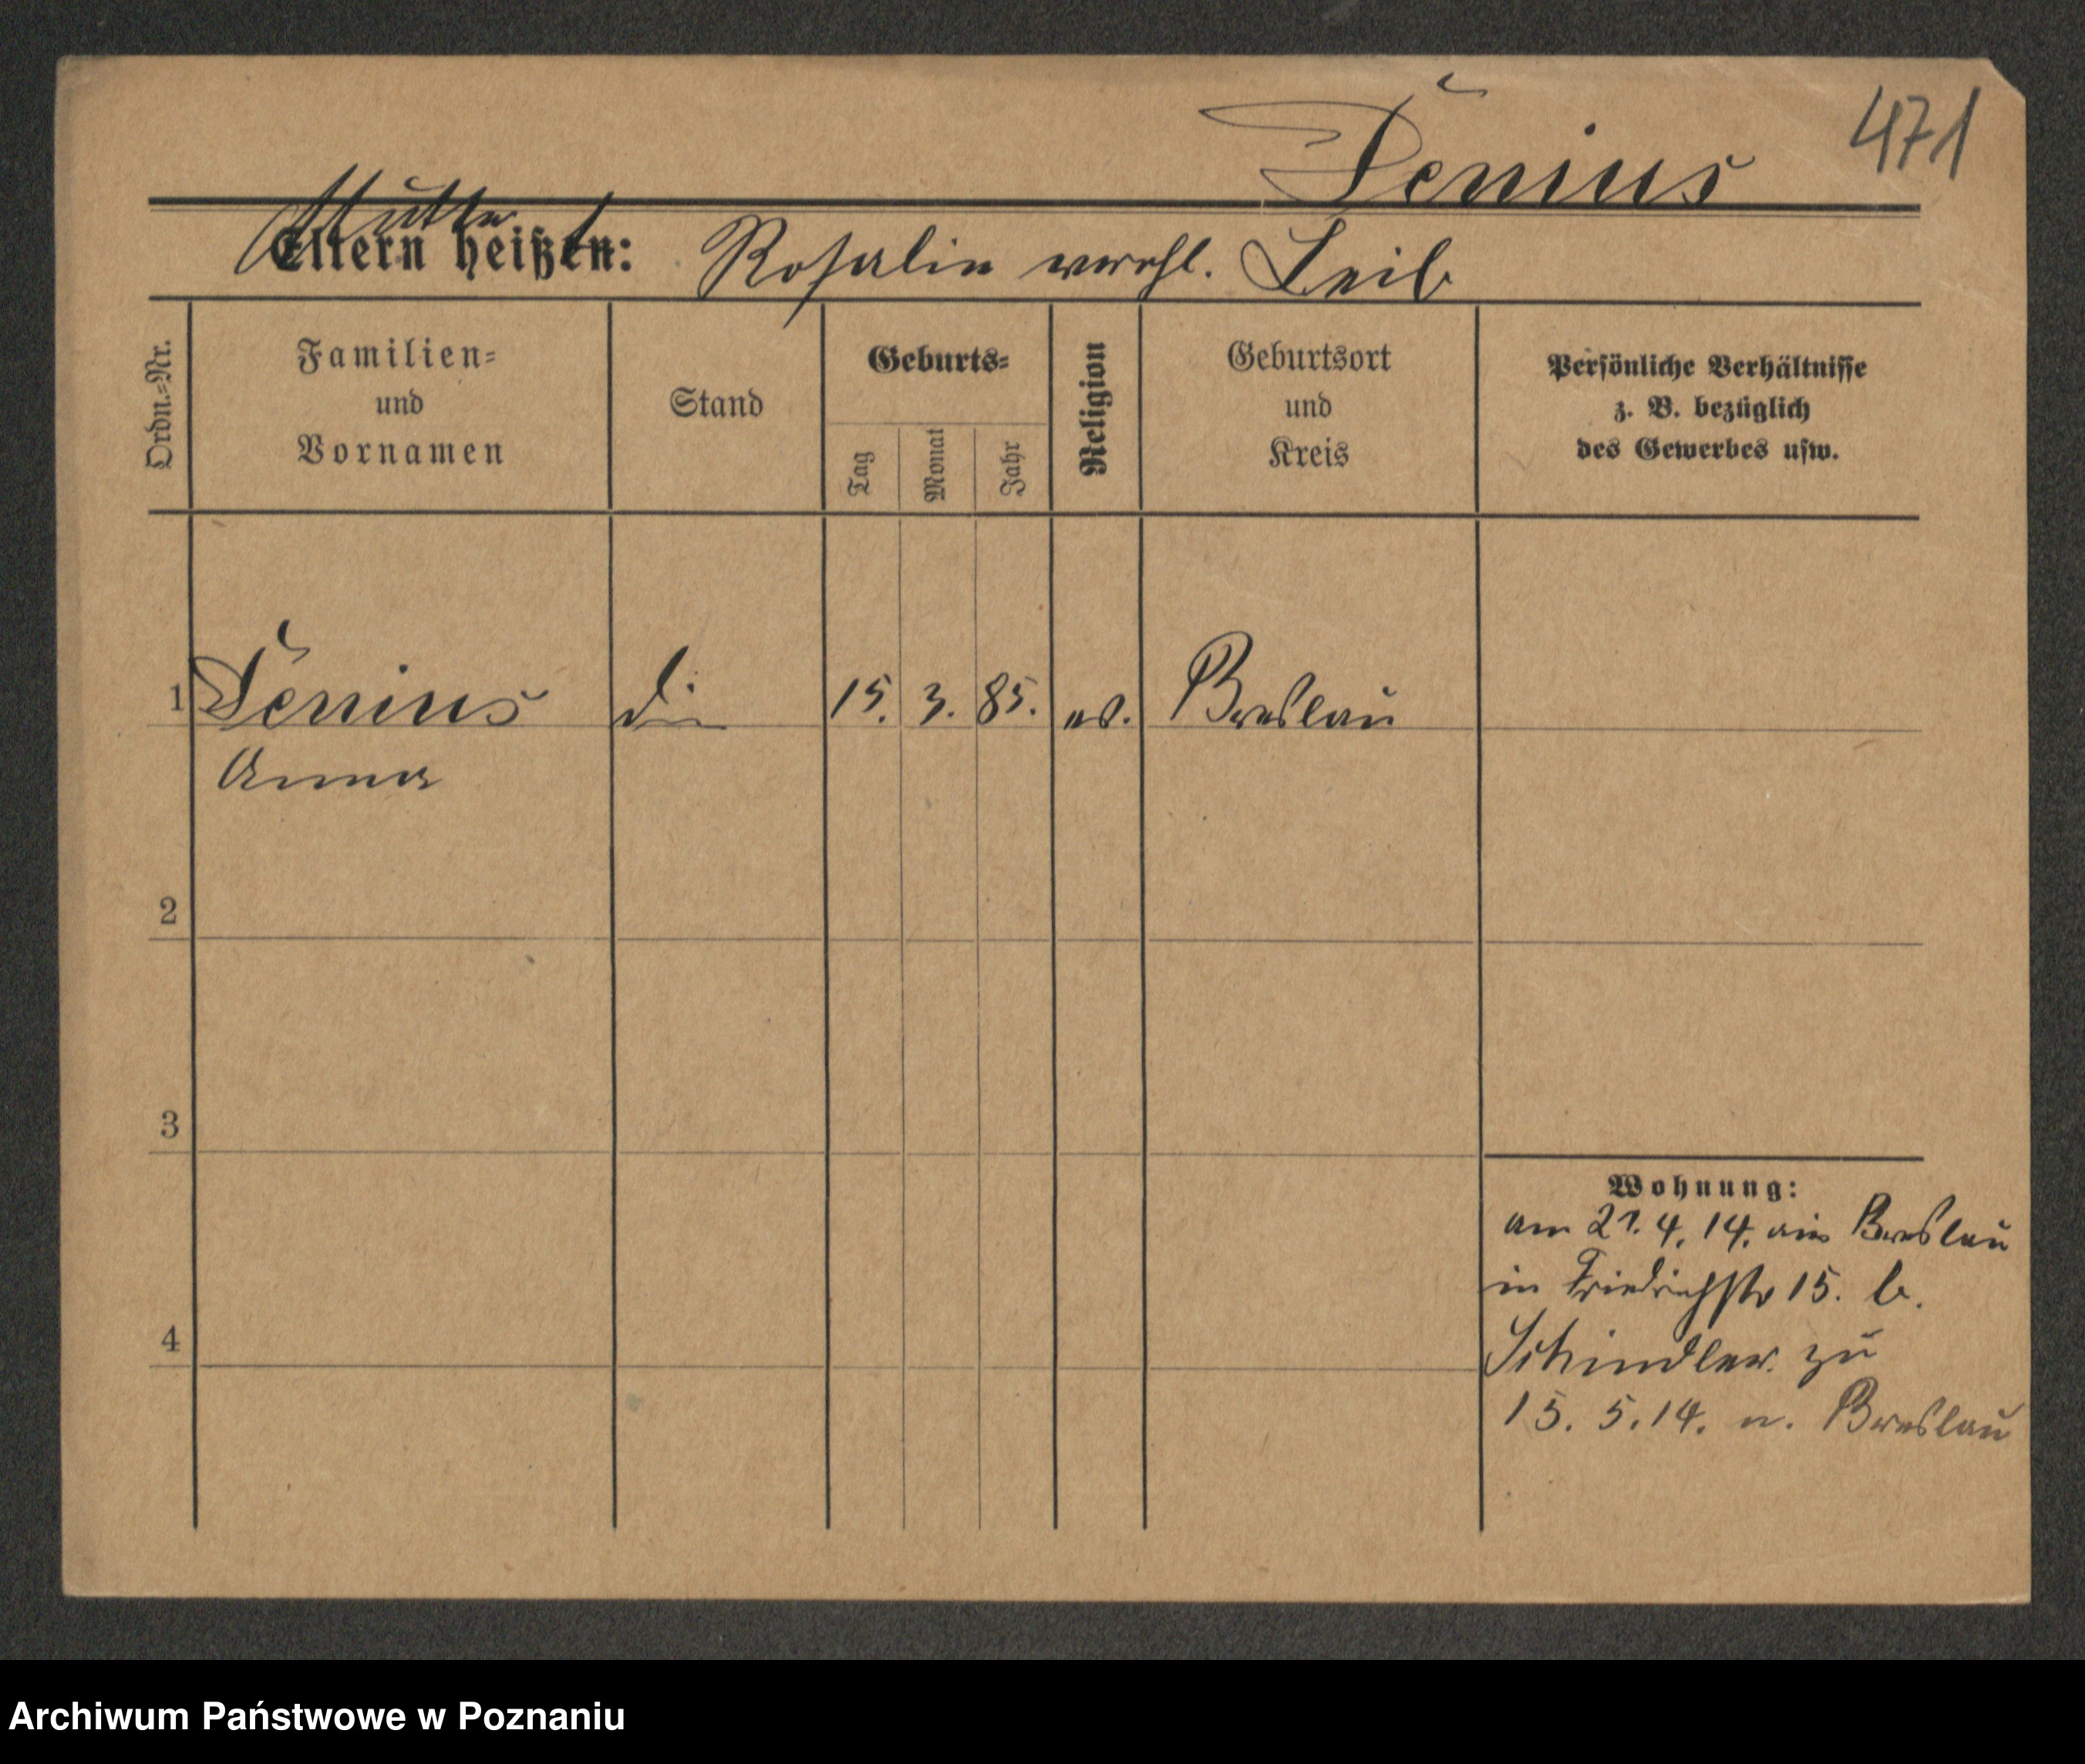 471
Jenius
Mutter
Eltern heißen: Rosalie verehl. Leib
Ordn.=Nr.
Familien=
und
Vornamen
Stand
Geburts=
Tag
Monat
Jahr
Religion
Geburtsort
und
Kreis
Persönliche Verhältnisse
z. B. bezüglich
des Gewerbes usw.
1 Jenius 15. 3. 85. ev. Breslau
Anna
2
3
4
Wohnung:
am 21. 4. 14. aus Breslau
in Friedrichstr 15. b.
Schindler. zu
15. 5. 14. n. Breslau
Archiwum Państwowe w Poznaniu